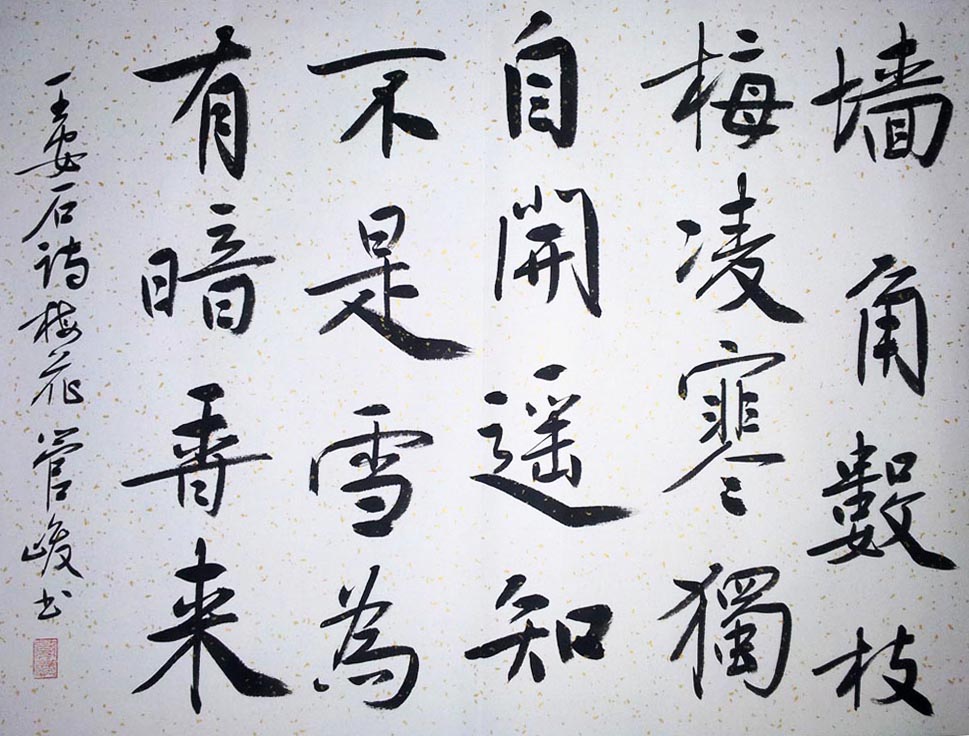 墙角數枝
梅凌寒獨
自開遥知
不是雪為
有暗香来
王安石诗梅花 管峻书